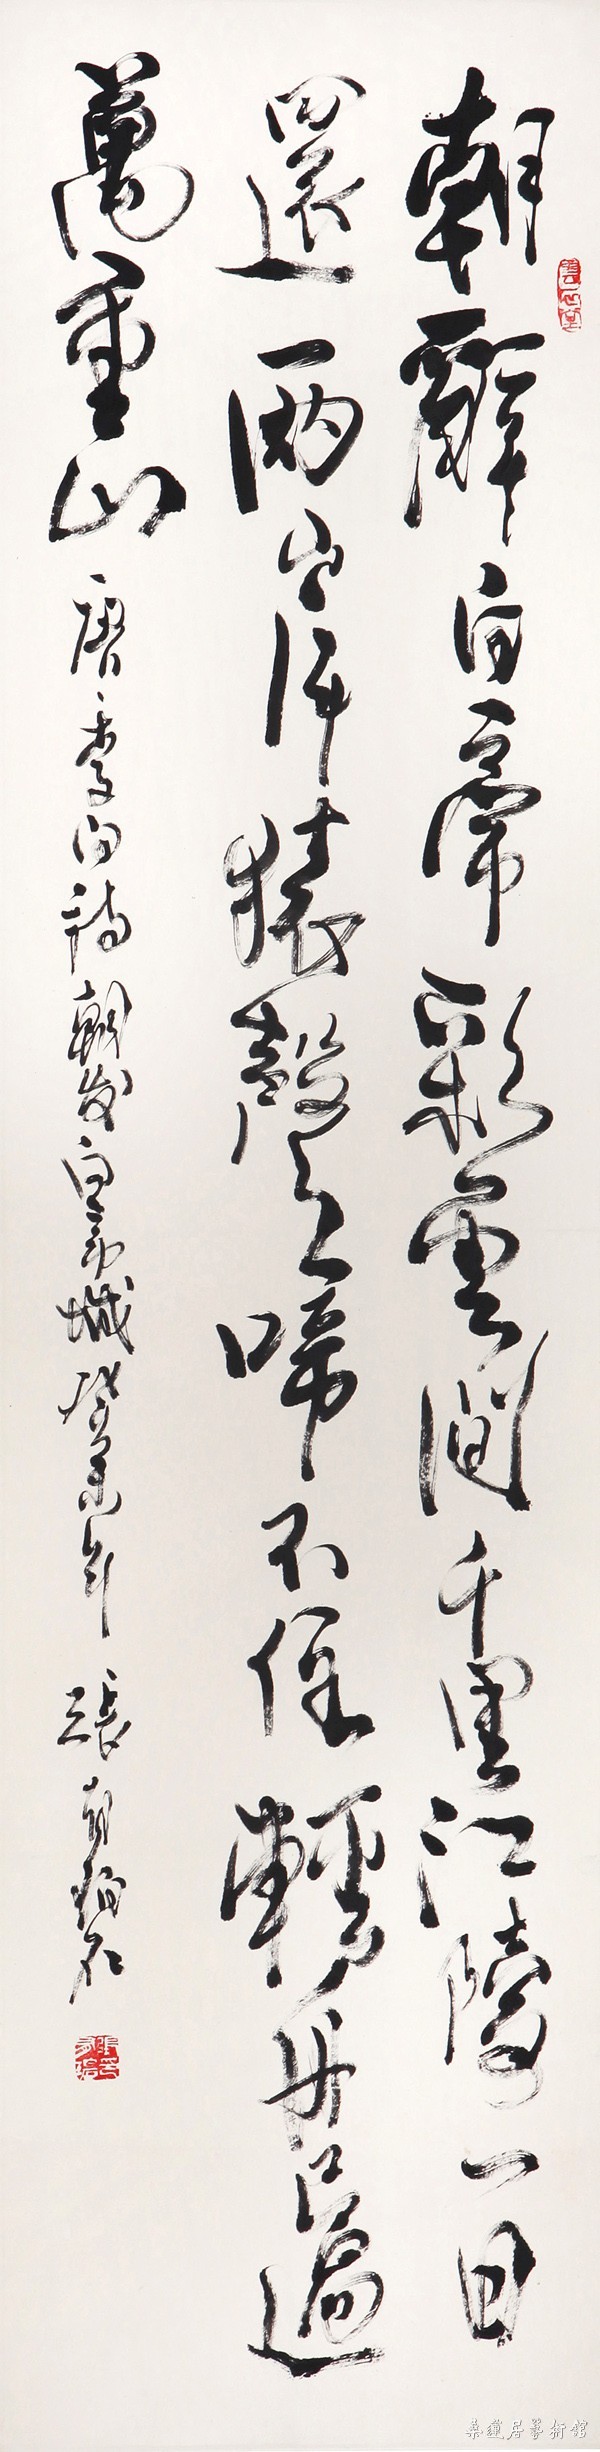 朝辭白帝彩雲間千里江陵一日
還兩岸猿聲啼不住輕舟已過
萬重山 唐李白詩朝发白帝城癸未年 張
桑蓮居藝術館